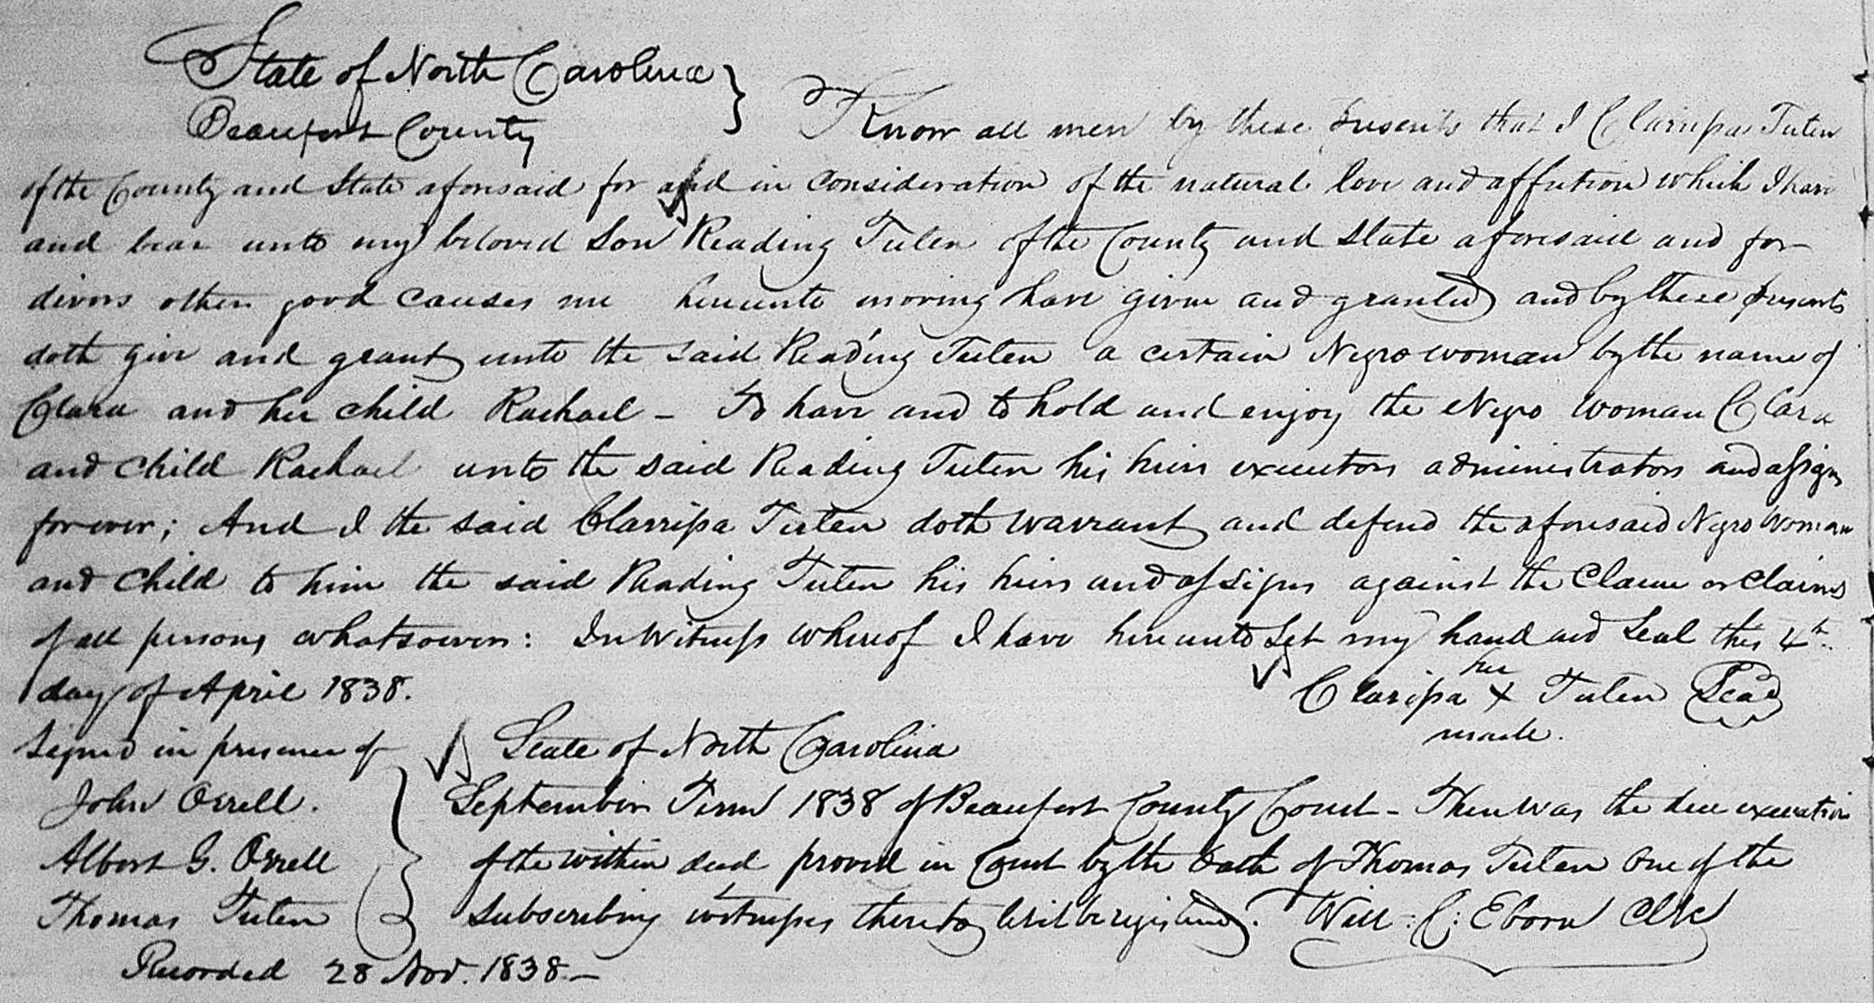 State of North Carolina }
Beaufort County
Know all men by these presents that I Clarissa Tuten
of the County and State aforesaid for and in consideration of the natural love and affection which I have
and bear unto my beloved Son Reading Tuten of the County and State aforesaid and for
divers other good causes me hereunto moving have given and granted and by these presents
doth give and grant unto the said Reading Tuten a certain Negro woman by the name of
Clara and her child Rachael - To have and to hold and enjoy the Negro woman Clara
and child Rachael unto the said Reading Tuten his heirs executors administrators and assigns
forever; And I the said Clarrissa Tuten doth warrant and defend the aforesaid Negro woman
and child to him the said Reading Tuten his heirs and assigns against the Claim or Claims
of all persons whatsoever: In Witness whereof I have hereunto set my hand and Seal this 4th
day of April 1838.
her
Clarissa X Tuten Seal
mark.
Signed in presence of
John Orrell.
Albert G. Orrell
Thomas Tuten
State of North Carolina
September Term 1838 of Beaufort County Court - Then was the due execution
of the within deed proved in Court by the Oath of Thomas Tuten one of the
Subscribing witnesses thereto let it be registered. Will: C: Eborn Clk
Recorded 28 Nov. 1838 -